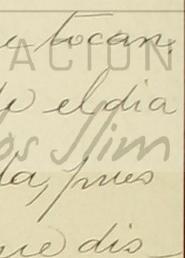 e tocan,
ACION
de el dia
os Slim
da, pues
ue dis